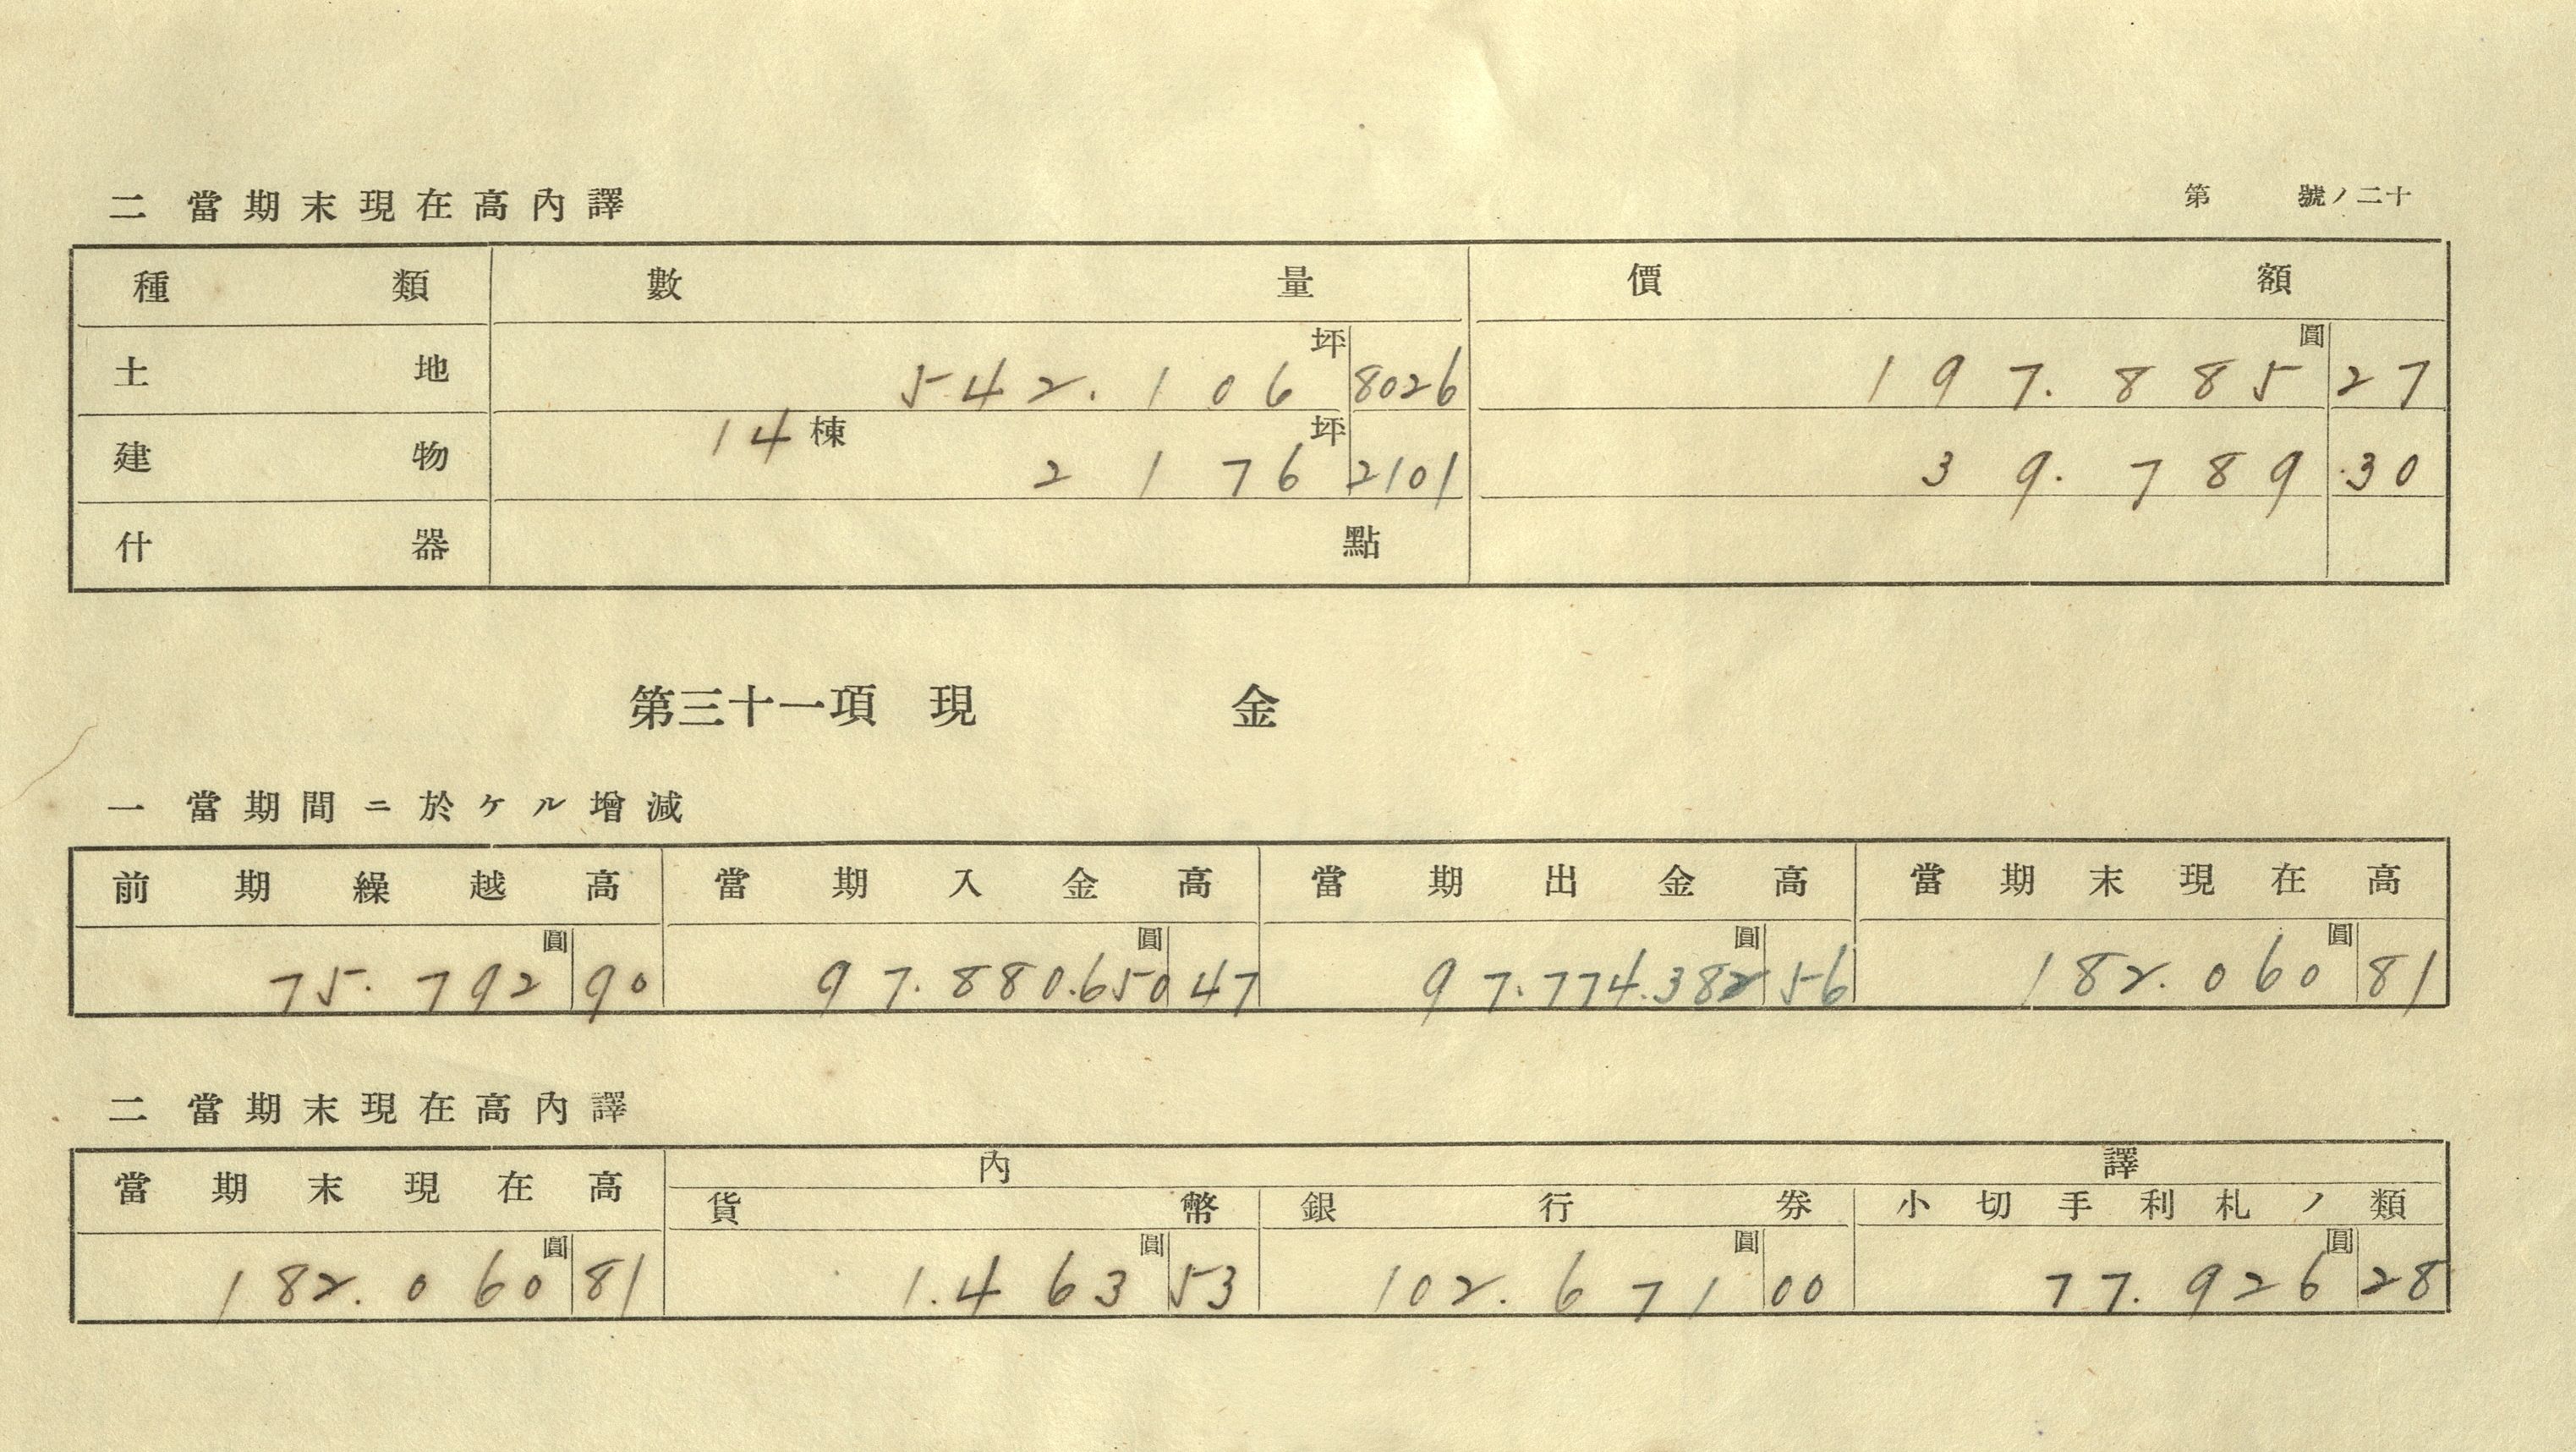 第　　號ノ二十
二 當期末現在高內譯
種類 數量 價額
土地 542.106坪8026 197.885圓27
建物 14棟 2176坪2101 39.789圓30
什器 點
第三十一項 現金
一 當期間ニ於ケル增減
前期繰越高 當期入金高 當期出金高 當期末現在高
75.792圓90 97.880.650圓47 97.774.382圓56 182.060圓81
二 當期末現在高內譯
當期末現在高 內譯
貨幣 銀行券 小切手利札ノ類
182.060圓81 1.463圓53 102.671圓00 77.926圓28